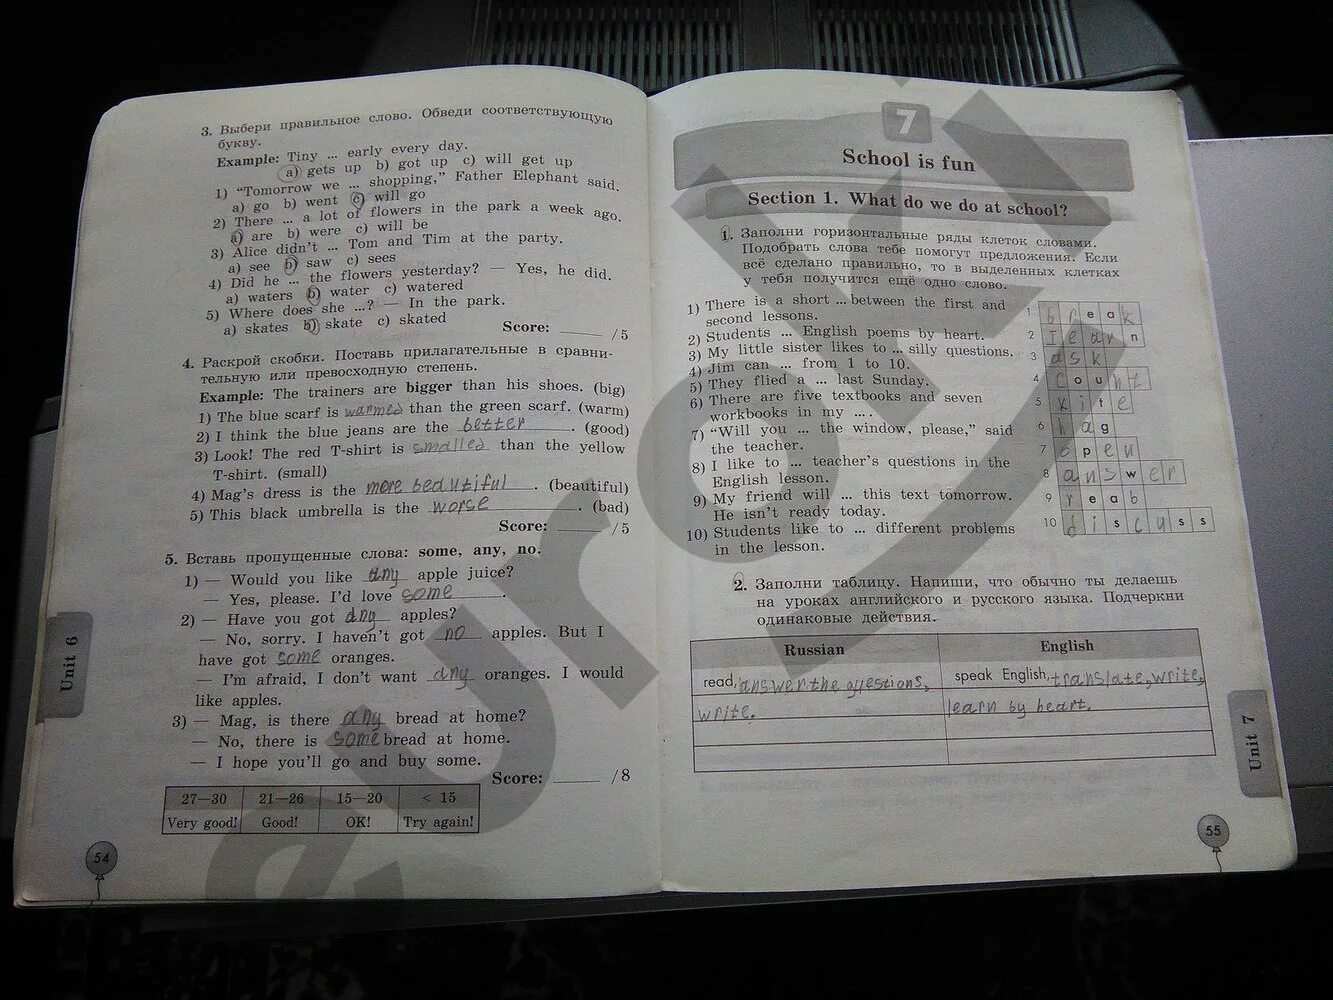 3. Выбери правильное слово. Обведи соответствующую
букву.
Example: Tiny ... early every day.
a) gets up b) got up c) will get up
1) "Tomorrow we ... shopping," Father Elephant said.
a) go b) went c) will go
2) There ... a lot of flowers in the park a week ago.
a) are b) were c) will be
3) Alice didn't ... Tom and Tim at the party.
a) see b) saw c) sees
4) Did he ... the flowers yesterday? — Yes, he did.
a) waters b) water c) watered
5) Where does she ...? — In the park.
a) skates b) skate c) skated
Score: ____ /5
4. Раскрой скобки. Поставь прилагательные в сравни-
тельную или превосходную степень.
Example: The trainers are bigger than his shoes. (big)
1) The blue scarf is warmed than the green scarf. (warm)
2) I think the blue jeans are the better. (good)
3) Look! The red T-shirt is smalled than the yellow
T-shirt. (small)
4) Mag's dress is the more beautiful. (beautiful)
5) This black umbrella is the worse. (bad)
Score: ____ /5
5. Вставь пропущенные слова: some, any, no.
1) — Would you like any apple juice?
— Yes, please. I'd love some.
2) — Have you got any apples?
— No, sorry. I haven't got no apples. But I
have got some oranges.
— I'm afraid, I don't want any oranges. I would
like apples.
3) — Mag, is there any bread at home?
— No, there is some bread at home.
— I hope you'll go and buy some.
Score: ____ /8
27—30 21—26 15—20 < 15
Very good! Good! OK! Try again!
Unit 6
54
7
School is fun
Section 1. What do we do at school?
1. Заполни горизонтальные ряды клеток словами.
Подобрать слова тебе помогут предложения. Если
всё сделано правильно, то в выделенных клетках
у тебя получится ещё одно слово.
1) There is a short ... between the first and
second lessons.
2) Students ... English poems by heart.
3) My little sister likes to ... silly questions.
4) Jim can ... from 1 to 10.
5) They flied a ... last Sunday.
6) There are five textbooks and seven
workbooks in my ... .
7) "Will you ... the window, please," said
the teacher.
8) I like to ... teacher's questions in the
English lesson.
9) My friend will ... this text tomorrow.
He isn't ready today.
10) Students like to ... different problems
in the lesson.
1 break
2 learn
3 ask
4 count
5 kite
6 bag
7 open
8 answer
9 reab
10 discuss
2. Заполни таблицу. Напиши, что обычно ты делаешь
на уроках английского и русского языка. Подчеркни
одинаковые действия.
Russian English
read, answer the questions, speak English, translate, write,
write. learn by heart.
Unit 7
55
euroki